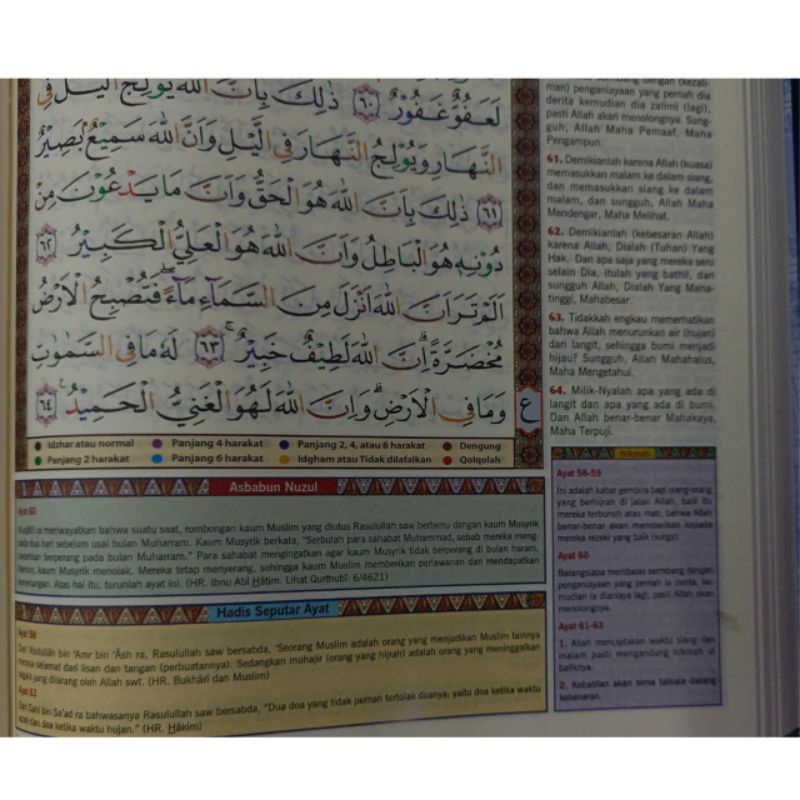 لَعَفُوٌّ غَفُوْرٌ ﴿٦٠﴾ ذٰلِكَ بِاَنَّ اللّٰهَ يُوْلِجُ الَّيْلَ فِى
النَّهَارِ وَيُوْلِجُ النَّهَارَ فِى الَّيْلِ وَاَنَّ اللّٰهَ سَمِيْعٌۢ بَصِيْرٌ
﴿٦١﴾ ذٰلِكَ بِاَنَّ اللّٰهَ هُوَ الْحَقُّ وَاَنَّ مَا يَدْعُوْنَ مِنْ
دُوْنِهٖ هُوَ الْبَاطِلُ وَاَنَّ اللّٰهَ هُوَ الْعَلِيُّ الْكَبِيْرُ ﴿٦٢﴾
اَلَمْ تَرَ اَنَّ اللّٰهَ اَنْزَلَ مِنَ السَّمَاۤءِ مَاۤءًۖ فَتُصْبِحُ الْاَرْضُ
مُخْضَرَّةًۗ اِنَّ اللّٰهَ لَطِيْفٌ خَبِيْرٌۚ ﴿٦٣﴾ لَهٗ مَا فِى السَّمٰوٰتِ
وَمَا فِى الْاَرْضِۗ وَاِنَّ اللّٰهَ لَهُوَ الْغَنِيُّ الْحَمِيْدُ ࣖ ﴿٦٤﴾
ع
Idzhar atau normal Panjang 4 harakat Panjang 2, 4, atau 6 harakat Dengung
Panjang 2 harakat Panjang 6 harakat Idgham atau Tidak dilafalkan Qolqolah
Asbabun Nuzul
Ayat 60
meriwayatkan bahwa suatu saat, rombongan kaum Muslim yang diutus Rasulullah saw bertemu dengan kaum Musyrik
pada dua hari sebelum usai bulan Muharram. Kaum Musyrik berkata, "Serbulah para sahabat Muhammad, sebab mereka meng-
haramkan berperang pada bulan Muharram." Para sahabat mengingatkan agar kaum Musyrik tidak berperang di bulan haram.
Namun, kaum Musyrik menolak. Mereka tetap menyerang, sehingga kaum Muslim memberikan perlawanan dan mendapatkan
kemenangan. Atas hal itu, turunlah ayat ini. (HR. Ibnu Abî Hâtim. Lihat Qurthubî: 6/4621)
Hadis Seputar Ayat
Ayat 58
Dari 'Abdullâh bin 'Amr bin 'Âsh ra, Rasulullah saw bersabda, "Seorang Muslim adalah orang yang menjadikan Muslim lainnya
merasa selamat dari lisan dan tangan (perbuatannya). Sedangkan muhajir (orang yang hijrah) adalah orang yang meninggalkan
segala yang dilarang oleh Allah swt. (HR. Bukhârî dan Muslim)
Ayat 63
Dari Sahl bin Sa'ad ra bahwasanya Rasulullah saw bersabda, "Dua doa yang tidak pernah tertolak doanya; yaitu doa ketika waktu
azan dan doa ketika waktu hujan." (HR. Hâkim)
seimbang dengan (kezali-
man) penganiayaan yang pernah dia
derita kemudian dia zalimi (lagi),
pasti Allah akan menolongnya. Sung-
guh, Allah Maha Pemaaf, Maha
Pengampun.
61. Demikianlah karena Allah (kuasa)
memasukkan malam ke dalam siang,
dan memasukkan siang ke dalam
malam, dan sungguh, Allah Maha
Mendengar, Maha Melihat.
62. Demikianlah (kebesaran Allah)
karena Allah, Dialah (Tuhan) Yang
Hak. Dan apa saja yang mereka seru
selain Dia, itulah yang bathil, dan
sungguh Allah, Dialah Yang Maha-
tinggi, Mahabesar.
63. Tidakkah engkau memerhatikan
bahwa Allah menurunkan air (hujan)
dari langit, sehingga bumi menjadi
hijau? Sungguh, Allah Mahahalus,
Maha Mengetahui.
64. Milik-Nyalah apa yang ada di
langit dan apa yang ada di bumi.
Dan Allah benar-benar Mahakaya,
Maha Terpuji.
Hikmah
Ayat 58-59
Ini adalah kabar gembira bagi orang-orang
yang berhijrah di jalan Allah, baik itu
mereka terbunuh atau mati, bahwa Allah
benar-benar akan memberikan kepada
mereka rezeki yang baik (surga).
Ayat 60
Barangsiapa membalas seimbang dengan
penganiayaan yang pernah ia derita, ke-
mudian ia dianiaya lagi, pasti Allah akan
menolongnya.
Ayat 61-63
1. Allah menciptakan waktu siang dan
malam pasti mengandung hikmah di
baliknya.
2. Kebatilan akan sirna tatkala datang
kebenaran.